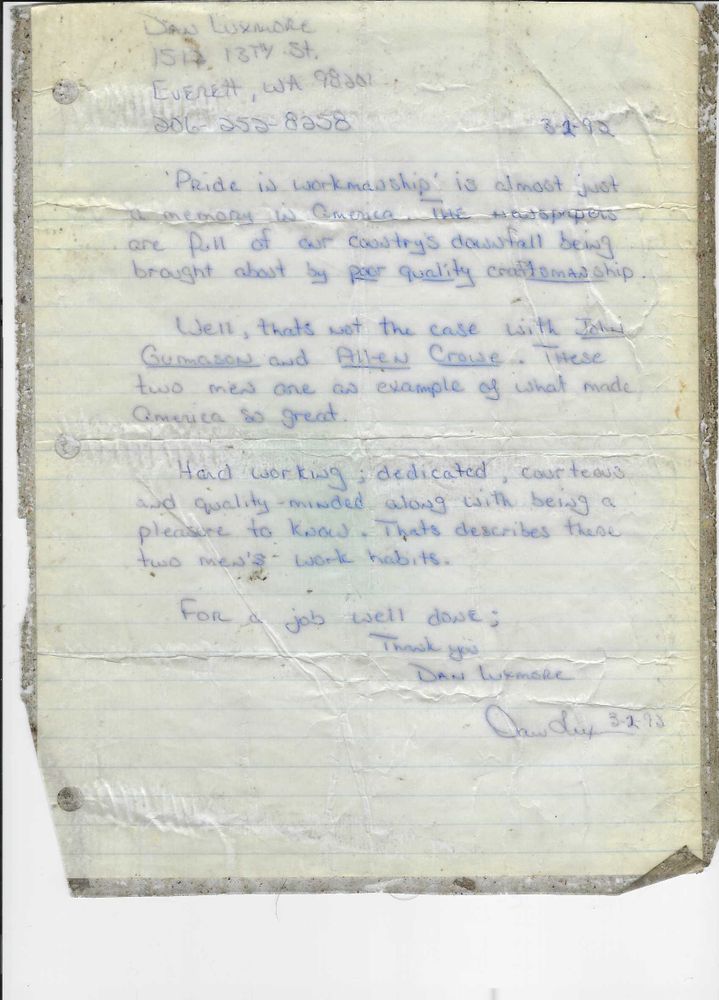 Dan Luxmore
1512 13TH St.
Everett, WA 98201
206-252-8258 3-2-92
'Pride in workmanship' is almost just
a memory in America. THE newspapers
are full of our country's downfall being
brought about by poor quality craftsmanship.
Well, thats not the case with John
Gumason and Allen Crowe. These
two men are an example of what made
America so great.
Hard working; dedicated, courteous
and quality-minded along with being a
pleasure to know. Thats describes these
two men's work habits.
For a job well done;
Thank you
Dan Luxmore
Dan Lux 3-2-92